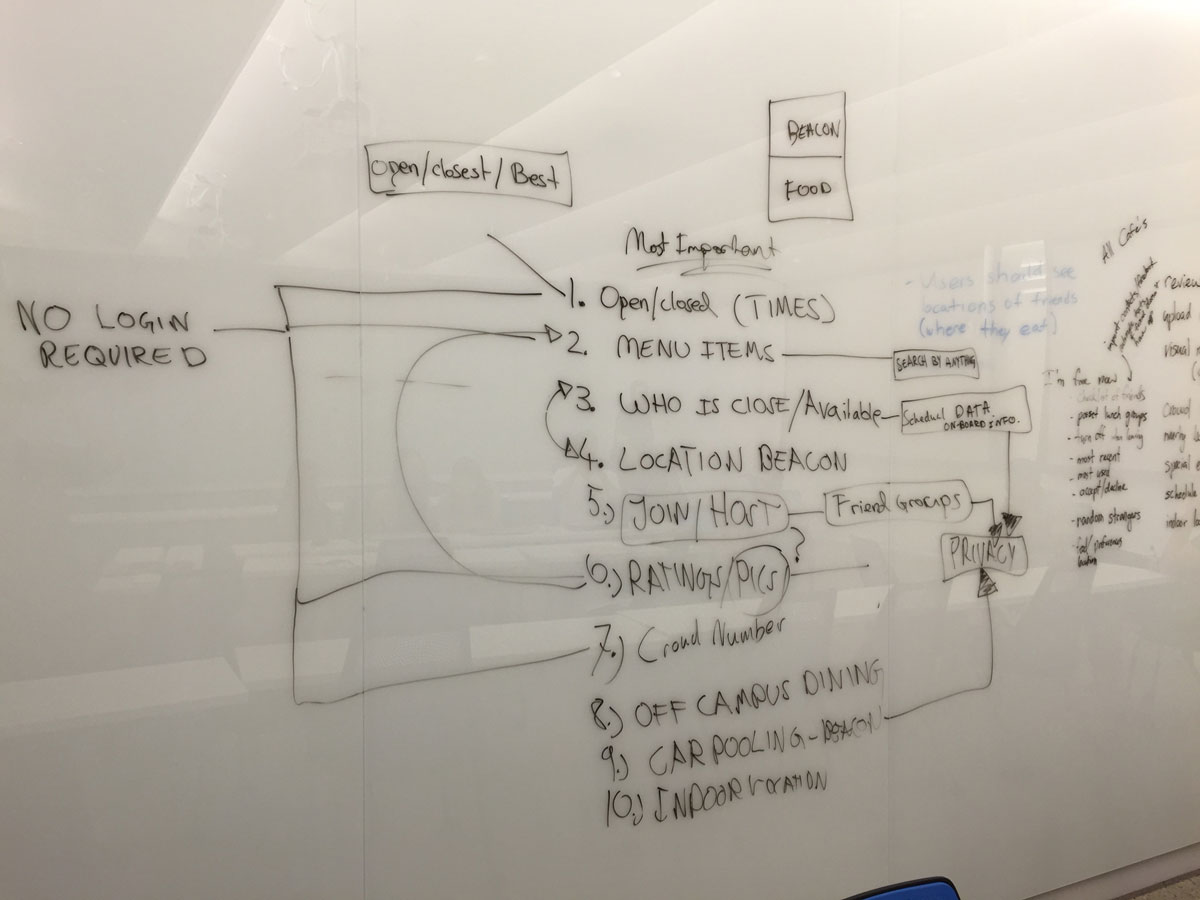 BEACON
FOOD
Open/closest/Best
Most Important
NO LOGIN
REQUIRED
1. Open/closed (TIMES)
2. MENU ITEMS
SEARCH BY ANYTHING
3. WHO IS CLOSE/Available
Schedual DATA
ON-BOARD INFO.
4. LOCATION BEACON
5.) JOIN/HOST
Friend Groups
PRIVACY
6.) RATINGS/PICS ?
7.) Croud Number
8.) OFF CAMPUS DINING
9.) CAR POOLING - BEACON
10.) INDOOR LOCATION
- Users should see
locations of friends
(where they eat)
All Cafe's
I'm free now
- checklist of friends
- preset lunch groups
- turn off
- most recent
- most used
- accept/decline
- random strangers
review
upload
visual
special
schedule
indoor